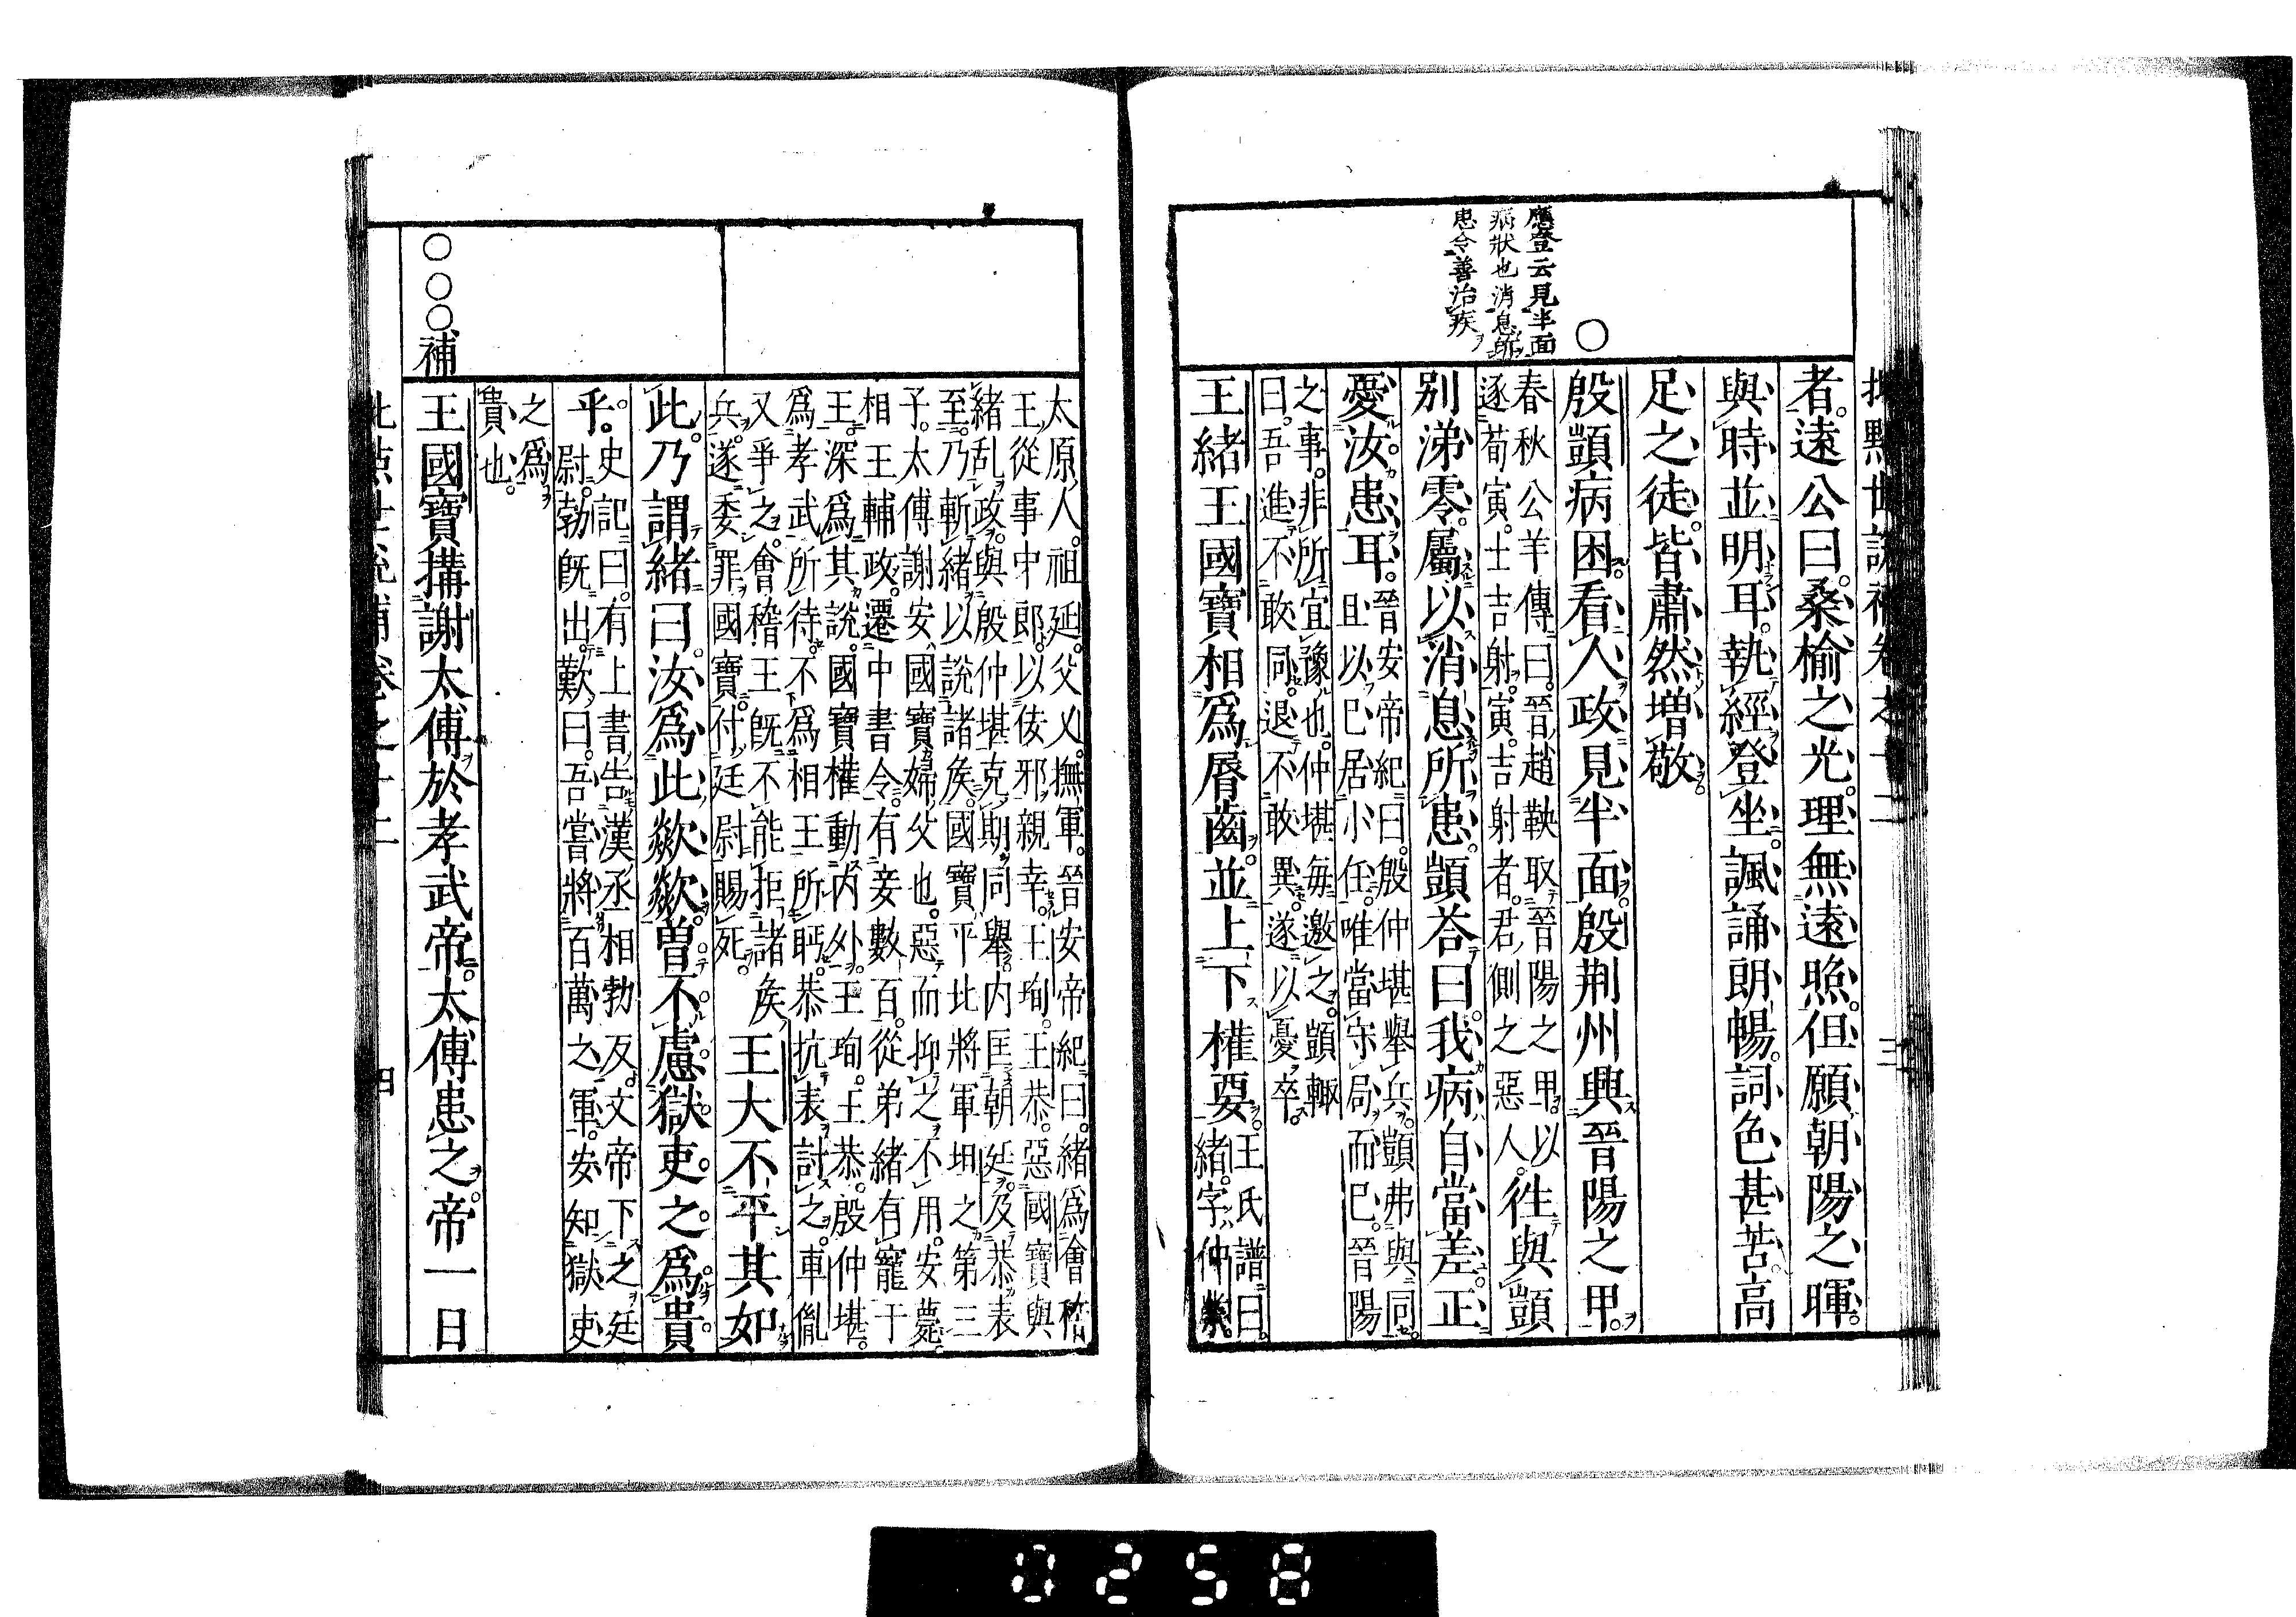 應登云見半面
病狀也消息所
患令善治疾
〇
者。遠公曰。桑榆之光。理無遠照。但願朝陽之暉。
與時並明耳。執經登坐。諷誦朗暢。詞色甚苦。高
足之徒。皆肅然增敬。
殷顗病困。看人政見半面。殷荆州興晉陽之甲。
春秋公羊傳曰。晉趙鞅取晉陽之甲。以
逐荀寅。士吉射。寅。吉射者。君側之惡人。
往與顗
別涕零。屬以消息所患。顗荅曰。我病自當差。正
愛汝患耳。
晉安帝紀曰。殷仲堪舉兵。顗弗與同。
且以巳居小任。唯當守局而巳。晉陽
之事。非所宜豫也。仲堪每邀之。顗輙
曰。吾進不敢同。退不敢異。遂以憂卒。
王緒王國寶相爲脣齒。並上下權要。
王氏譜曰。
緒。字仲業。
三
〇〇〇補
太原人。祖延。父乂。撫軍。晉安帝紀曰。緒爲會稽
王從事中郎。以佞邪親幸。王珣。王恭。惡國寶與
緒乱政。與殷仲堪克期同舉。内匡朝廷。及恭表
至。乃斬緒以說諸矦。國寶。平北將軍坦之第三
子。太傅謝安。國寶婦父也。惡而抑之。不用。安薨。
相王輔政。遷中書令。有妾數百。從弟緒有寵于
王。深爲其說。國寶權動内外。王珣。王恭。殷仲堪。
爲孝武所待。不爲相王所眄。恭抗表討之。車胤
又爭之。會稽王旣不能拒諸矦
兵。遂委罪國寶。付廷尉賜死。
王大不平其如
此。乃謂緒曰。汝爲此歘歘。曾不慮獄吏之爲貴
乎。
史記曰。有上書告漢丞相勃反。文帝下之廷
尉。勃旣出。歎曰。吾嘗將百萬之軍。安知獄吏
之爲
貴也。
王國寶搆謝太傅於孝武帝。太傅患之。帝一日
四